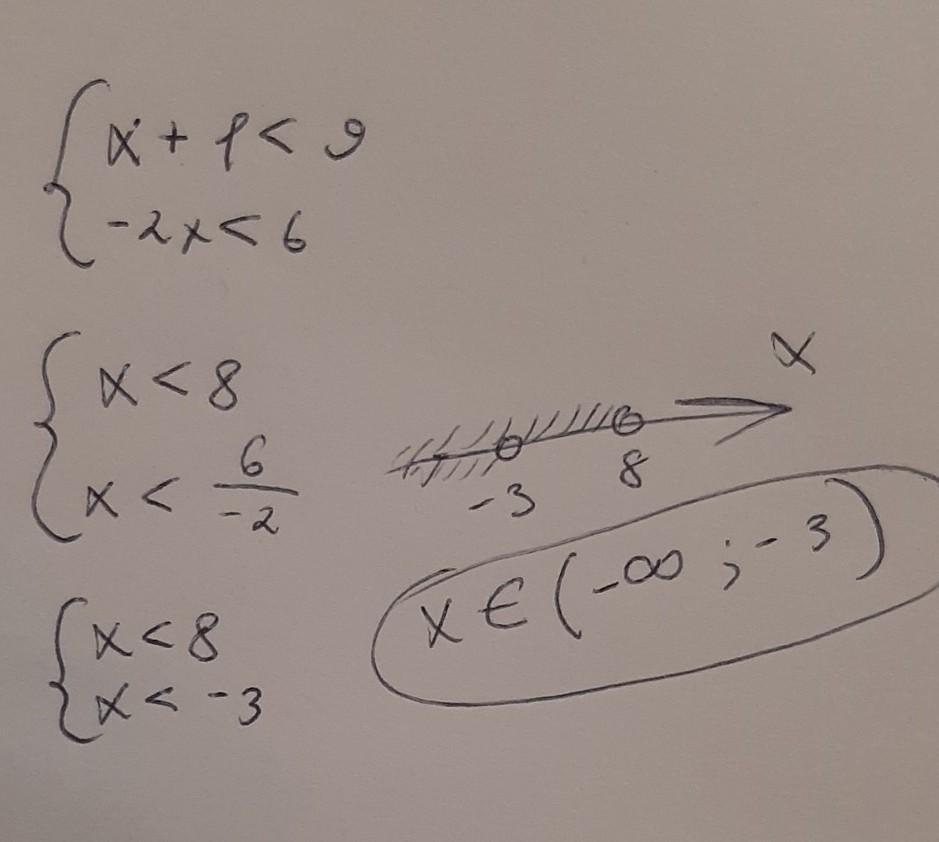 x + 1 < 9
-2x < 6
x < 8
x < 6/-2
x < 8
x < -3
x
-3 8
x ∈ (-∞ ; -3)